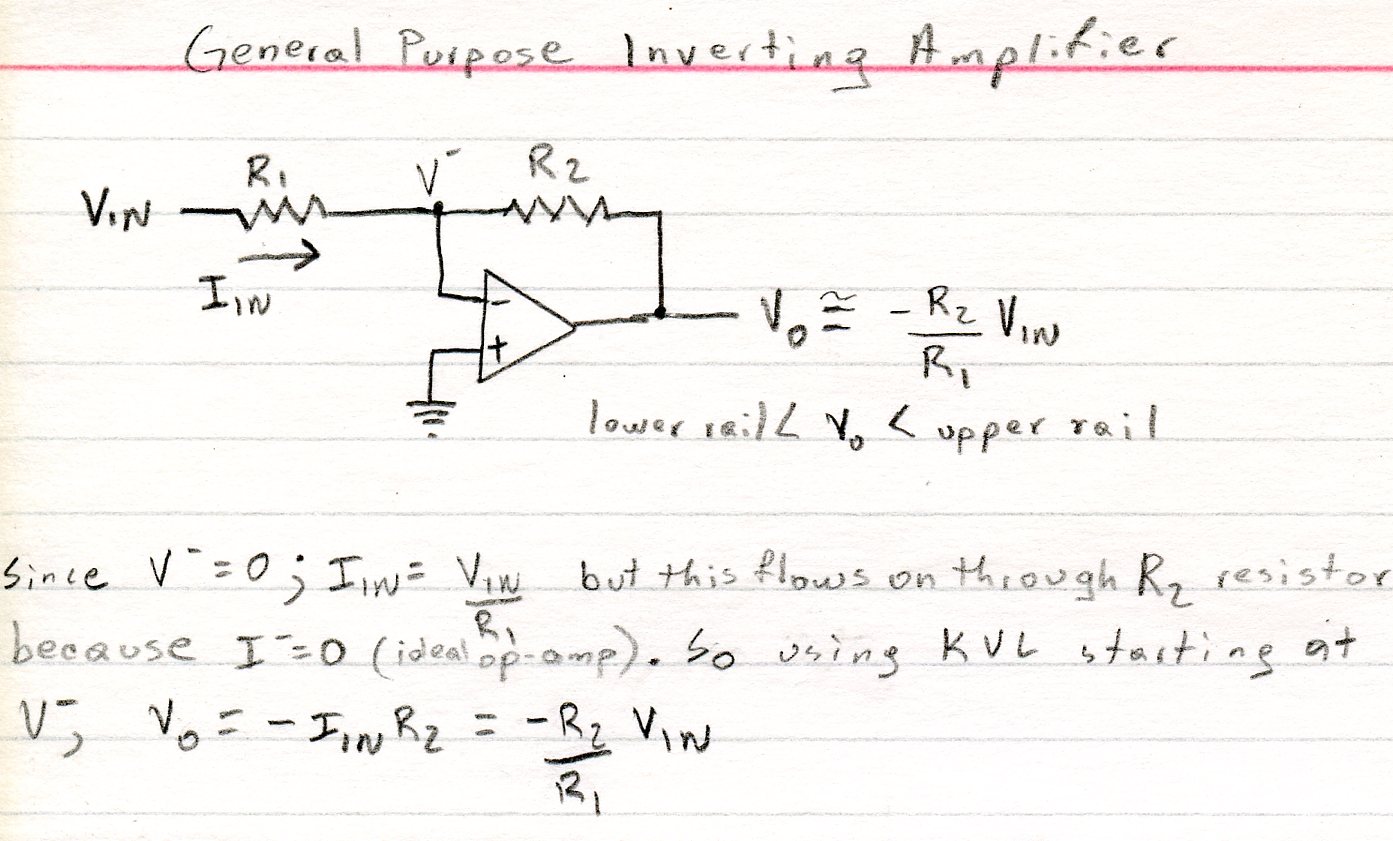 General Purpose Inverting Amplifier
R₁ V⁻ R₂
V_IN
I_IN
-
+
V₀ ≅ -R₂/R₁ V_IN
lower rail < V₀ < upper rail
Since V⁻=0; I_IN = V_IN/R₁ but this flows on through R₂ resistor
because I⁻=0 (ideal op-amp). So using KVL starting at
V⁻, V₀ = -I_IN R₂ = -R₂/R₁ V_IN